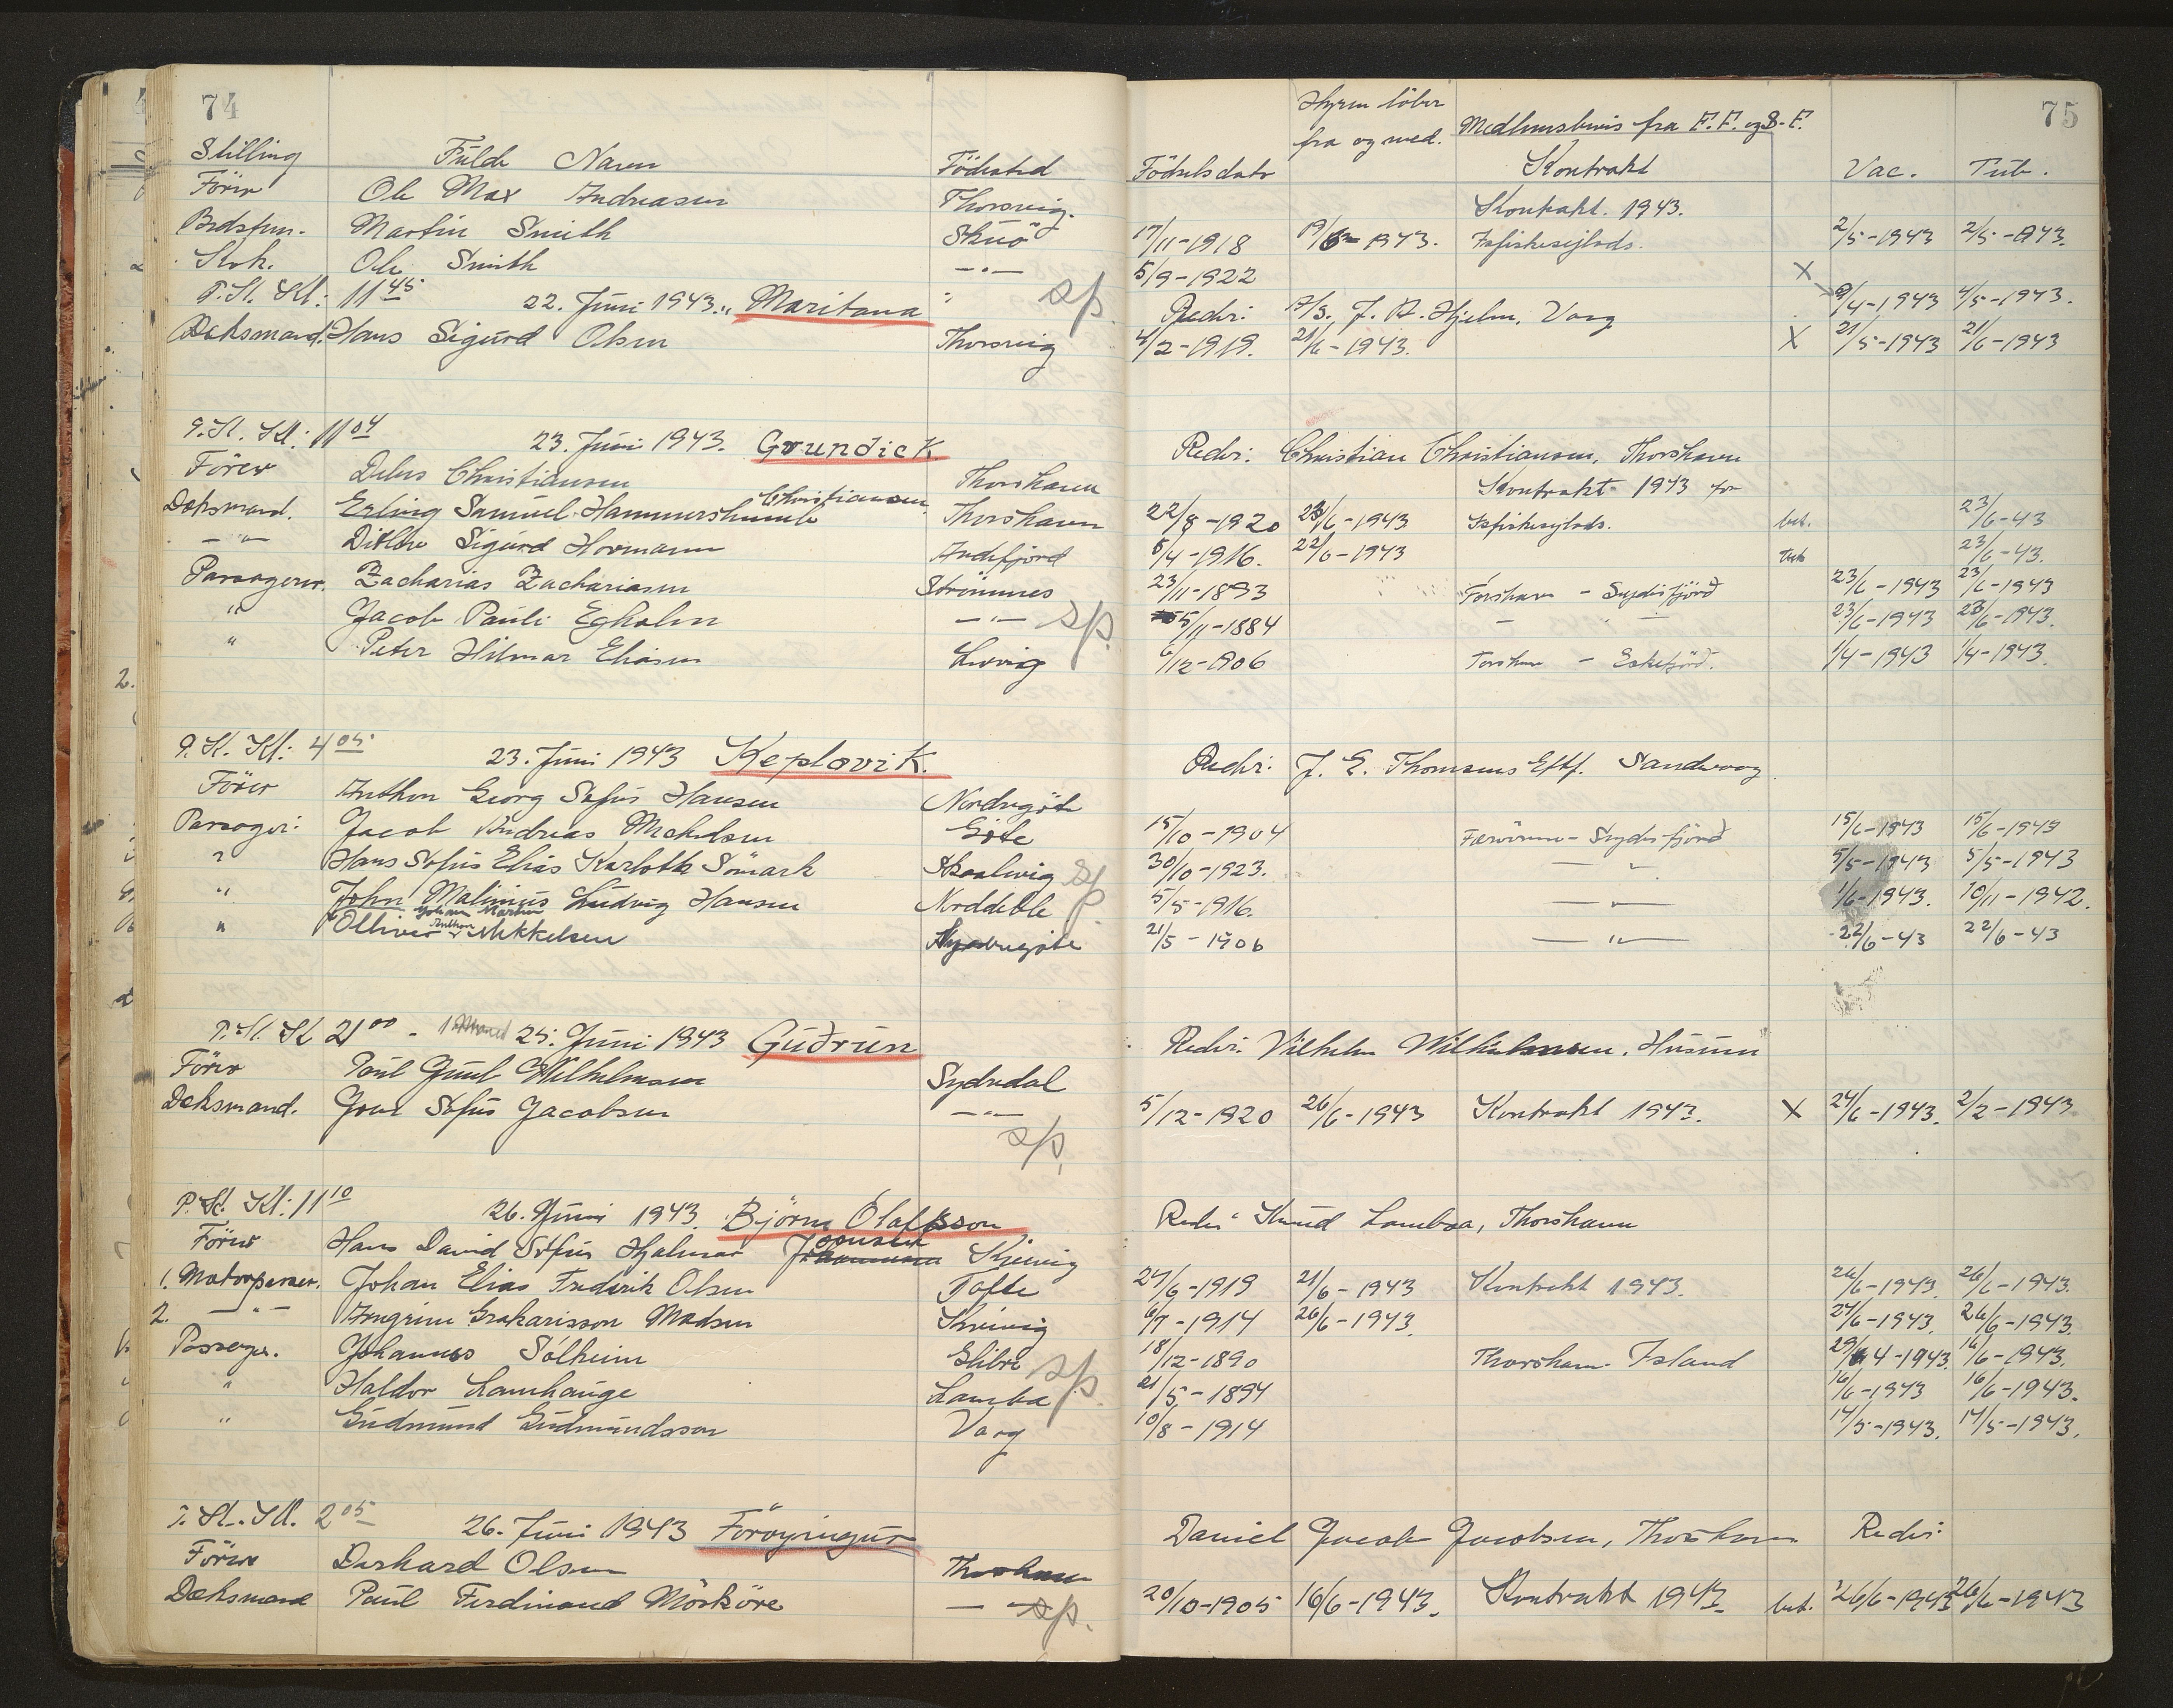 74
75
Stilling Fulde Navn Födested Födselsdato Hyren löber fra og med. Medlemsbevis fra F.F. og S.F. Kontrakt Vac. Tub.
Förer Ole Max Andreasen Thorsvig. Kontrakt. 1943.
Martin Smith Skuö 17/11-1918 1943. 2/5-1943 2/5-1943.
Kok. Ole Smith -"- 5/9-1922 X
P.St. Kl: 11 45 22. Juni 1943. "Maritana" sp. Reder: J. A. Hjelm. Vaag /4-1943 4/5-1943.
Deksmand. Hans Sigurd Olsen Thorsvig 4/2-1919. 21/6-1943. X 21/5-1943 21/6-1943
P.St. Kl: 11 04 23. Juni 1943. Grundick Reder: Christian Christiansen, Thorshavn
Förer Christiansen Thorshavn Kontrakt 1943 for
Deksmand. Erling Samuel Christiansen Thorshavn 22/8-1920 23/6-1943 bet. 23/6-43
-"- Sigurd Hovmann Andefjord 5/4-1916. 22/6-1943 23/6-43.
Passagerer. Zacharias Zachariasen Strömnes 23/11-1893 Torshavn - Seydisfjörd 23/6-1943 23/6-1943
" Jacob Pauli Egholm -"- sp. 5/11-1884 - - 23/6-1943 23/6-1943.
" Peter Hilmar Eliasen Lervig 6/12-1906 Torshavn - Eskefjörd. 1/4-1943 1/4-1943.
P.St. Kl: 4 05 23. Juni 1943 Keplavik. Reder: J. E. Thomsens Eftf. Sandvaag
Förer Anthon Georg Sofus Hansen Nordregöte
Passager: Jacob Andreas Michelsen Göte 15/10-1904 Færöerne - Seydisfjörd 15/6-1943 15/6-1943
" Hans Sofus Elias Karloth Sömark Skaalevig sp. 30/10-1923. -"- 5/5-1943 5/5-1943
" John Malinius Ludvig Hansen Norddeble 5/5-1916. -"- 1/6-1943. 10/11-1942.
" Olliver Johan Martin Anthon Mikkelsen 21/5-1906 -"- 22/6-43 22/6-43
P.St. Kl 21 00 - 25. Juni 1943 Gudrun Reder: Vilhelm Wilhelmsen. Husum
Förer Poul Juul Wilhelmsen Sydredal
Deksmand. Joen Sofus Jacobsen -"- sp. 5/12-1920 26/6-1943 Kontrakt 1943. X 24/6-1943. 2/2-1943
P.St. Kl: 11 10 26. Juni 1943. Björn Olafsson Reder Knud Lambaa, Thorshavn
Förer Hans David Sofus Hjalmar Joensen Kvivig
1. Motorpasser. Johan Elias Frederik Olsen Tofte 27/6-1919 21/6-1943 Kontrakt 1943. 26/6-1943. 26/6-1943.
2. -"- Arngrim Grakarisson Madsen Kvivig 6/7-1914 26/6-1943. 24/6-1943. 26/6-1943.
Passager. Johannes Solheim Glibre sp. 18/12-1890 Thorshavn - Island 29/4-1943. 16/6-1943.
" Haldor Lamhauge Lamba 21/5-1894 16/6-1943 16/6-1943.
" Gudmund Gudmundsson Vaag 10/8-1914 14/5-1943. 14/5-1943.
P.St. Kl. 2 05 26. Juni 1943 Föroyingur Daniel Jacob Jacobsen, Thorshavn Reder:
Förer Olsen Thorshavn
Deksmand Paul Ferdinand Mörköre -"- sp. 20/10-1905 16/6-1943. Kontrakt 1943. bet. 26/6-1943 26/6-1943